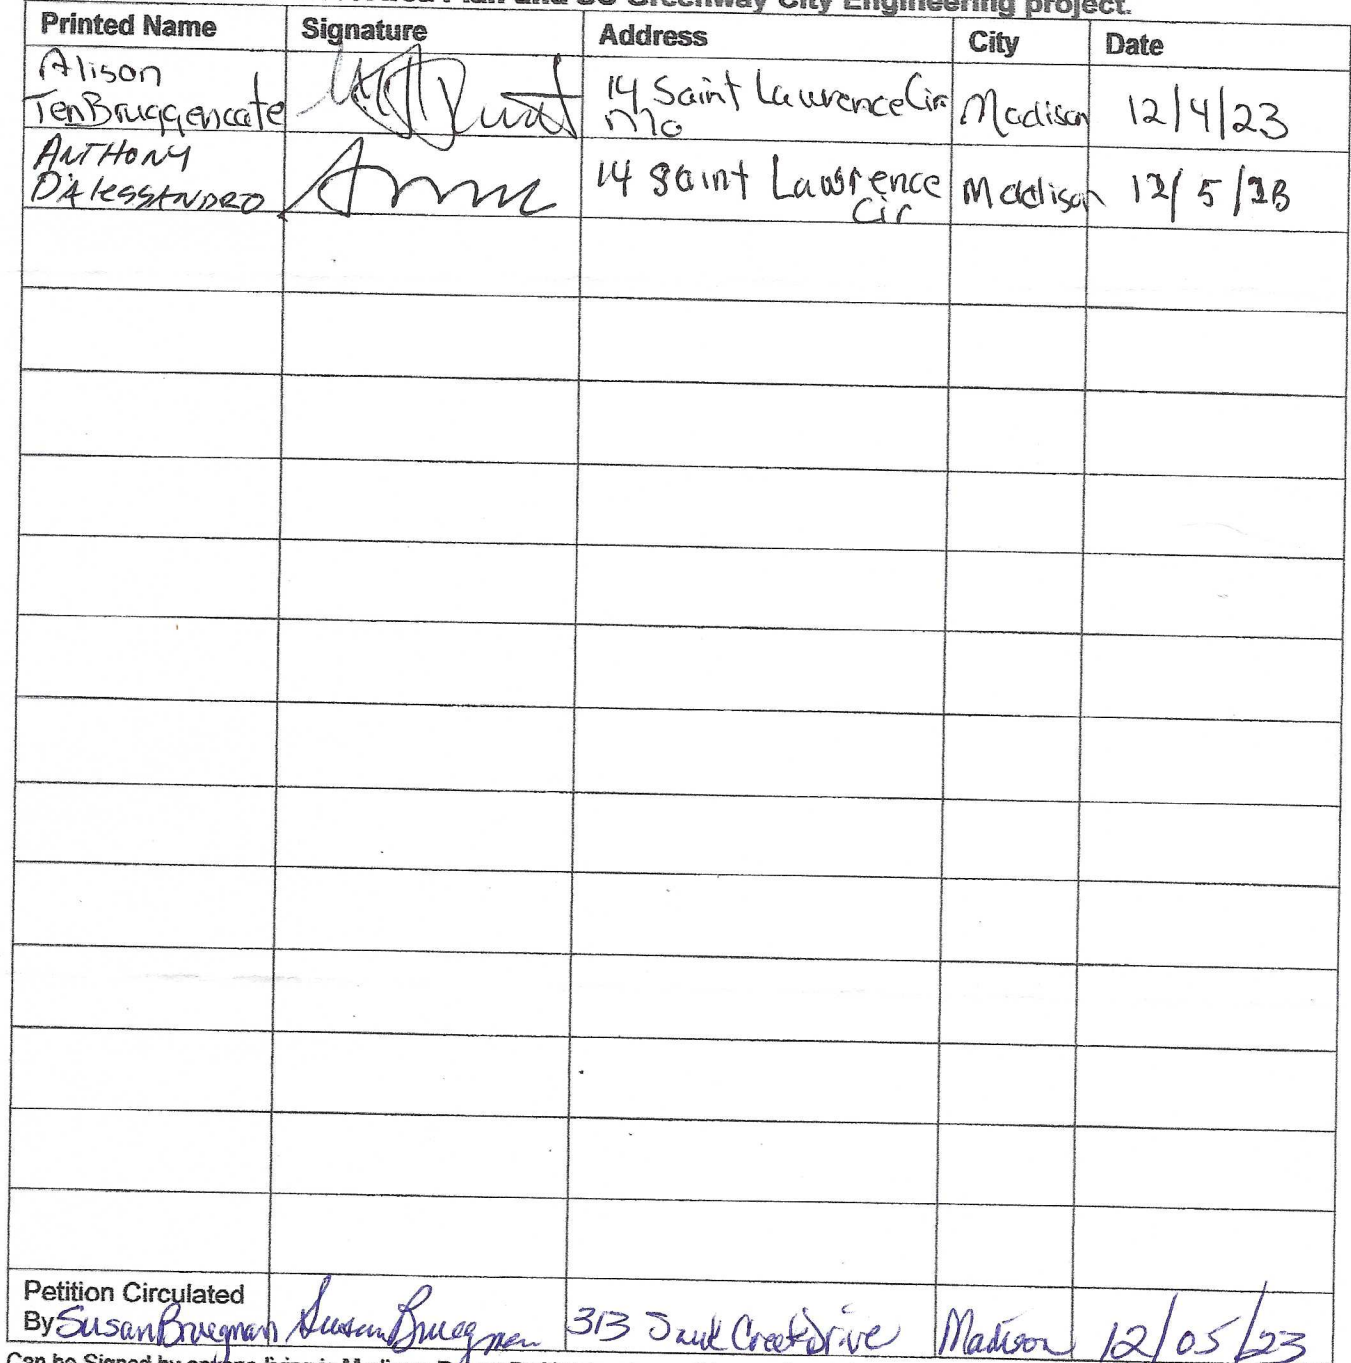 Plan and SC Greenway City Engineering project.
Printed Name Signature Address City Date
Alison
TenBruggencate
14 Saint Lawrence Cir
Madison 12/4/23
ANTHONY
D'ALESSANDRO
14 Saint Lawrence
Cir
Madison 12/5/23
Petition Circulated
By Susan Bruegman Susan Bruegman 313 Sauk Creek Drive Madison 12/05/23
Can be Signed by anyone living in